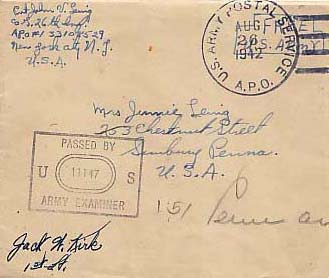 John V. Leing
26th Inf
New York City N.Y.
U.S.A.
U.S. ARMY POSTAL SERVICE
AUG
26
1942
A.P.O.
Mrs Jennie Leing
253 Chestnut Street
Sunbury Penna.
U.S.A.
PASSED BY
U 11147 S
ARMY EXAMINER
151 Penn
Jack W. Kirk
1st Lt.